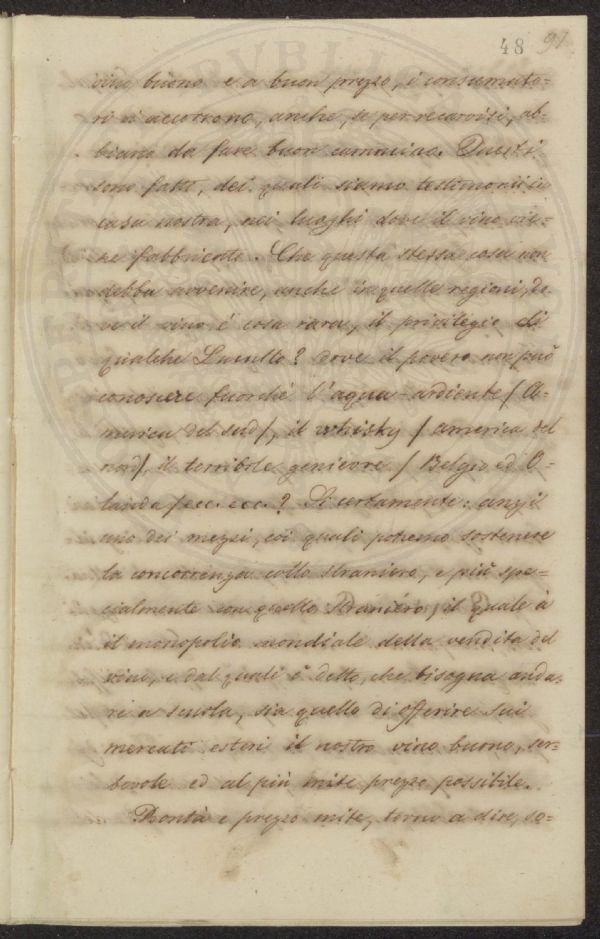 48 97
vino buono e a buon prezzo, i consumato=
ri vi accorrono, anche, se per recarvisi, ab=
biano da fare buon cammino. Questi
sono fatti, dei quali siamo testimonii in
casa nostra, nei luoghi dove il vino vie=
ne fabbricato. Che questa stessa cosa non
debba avvenire, anche in quelle regioni, do=
ve il vino è cosa rara, il privilegio di
qualche Lucullo? dove il povero non può
conoscere fuorchè l'aqua-ardiente (A=
merica del sud), il whisky (america del
nord), il terribile genievre (Belgio ed O=
landa) ecc. ecc.? Sì certamente: anzi
uno dei mezzi, coi quali potremo sostenere
la concorrenza collo straniero, e più spe=
cialmente con quello straniero, il quale à
il monopolio mondiale della vendita del
vino, e dal quale è detto, che bisogna anda=
re a scuola, sia quello di offerire sui
mercati esteri il nostro vino buono, ser=
bevole ed al più mite prezzo possibile.
Bontà e prezzo mite, torno a dire, so=